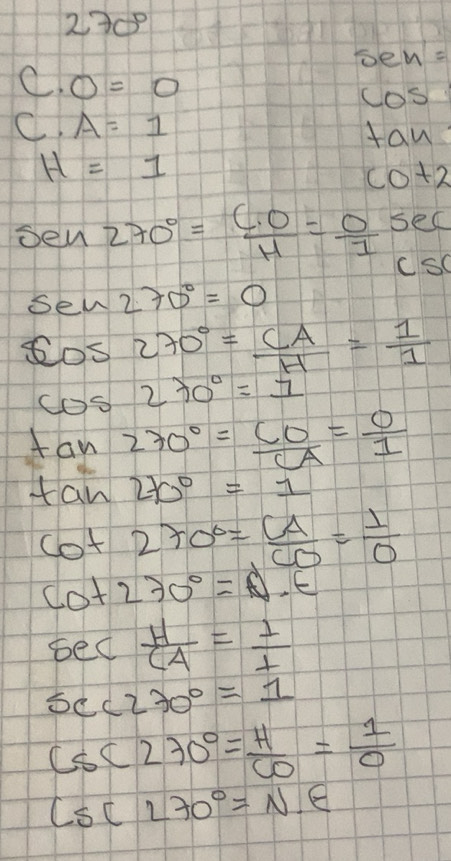 270°
sen =
C.O = 0
cos
C.A = 1
tan
H = 1
cot2
sen 270° = C.O/H = 0/1
sec
csc
sen 270° = 0
cos 270° = CA/H = 1/1
cos 270° = 1
tan 270° = CO/CA = 0/1
tan 270° = 1
cot 270° = CA/CO = 1/0
cot 270° = N.E
sec H/CA = 1/1
sec 270° = 1
csc 270° = H/CO = 1/0
csc 270° = N.E